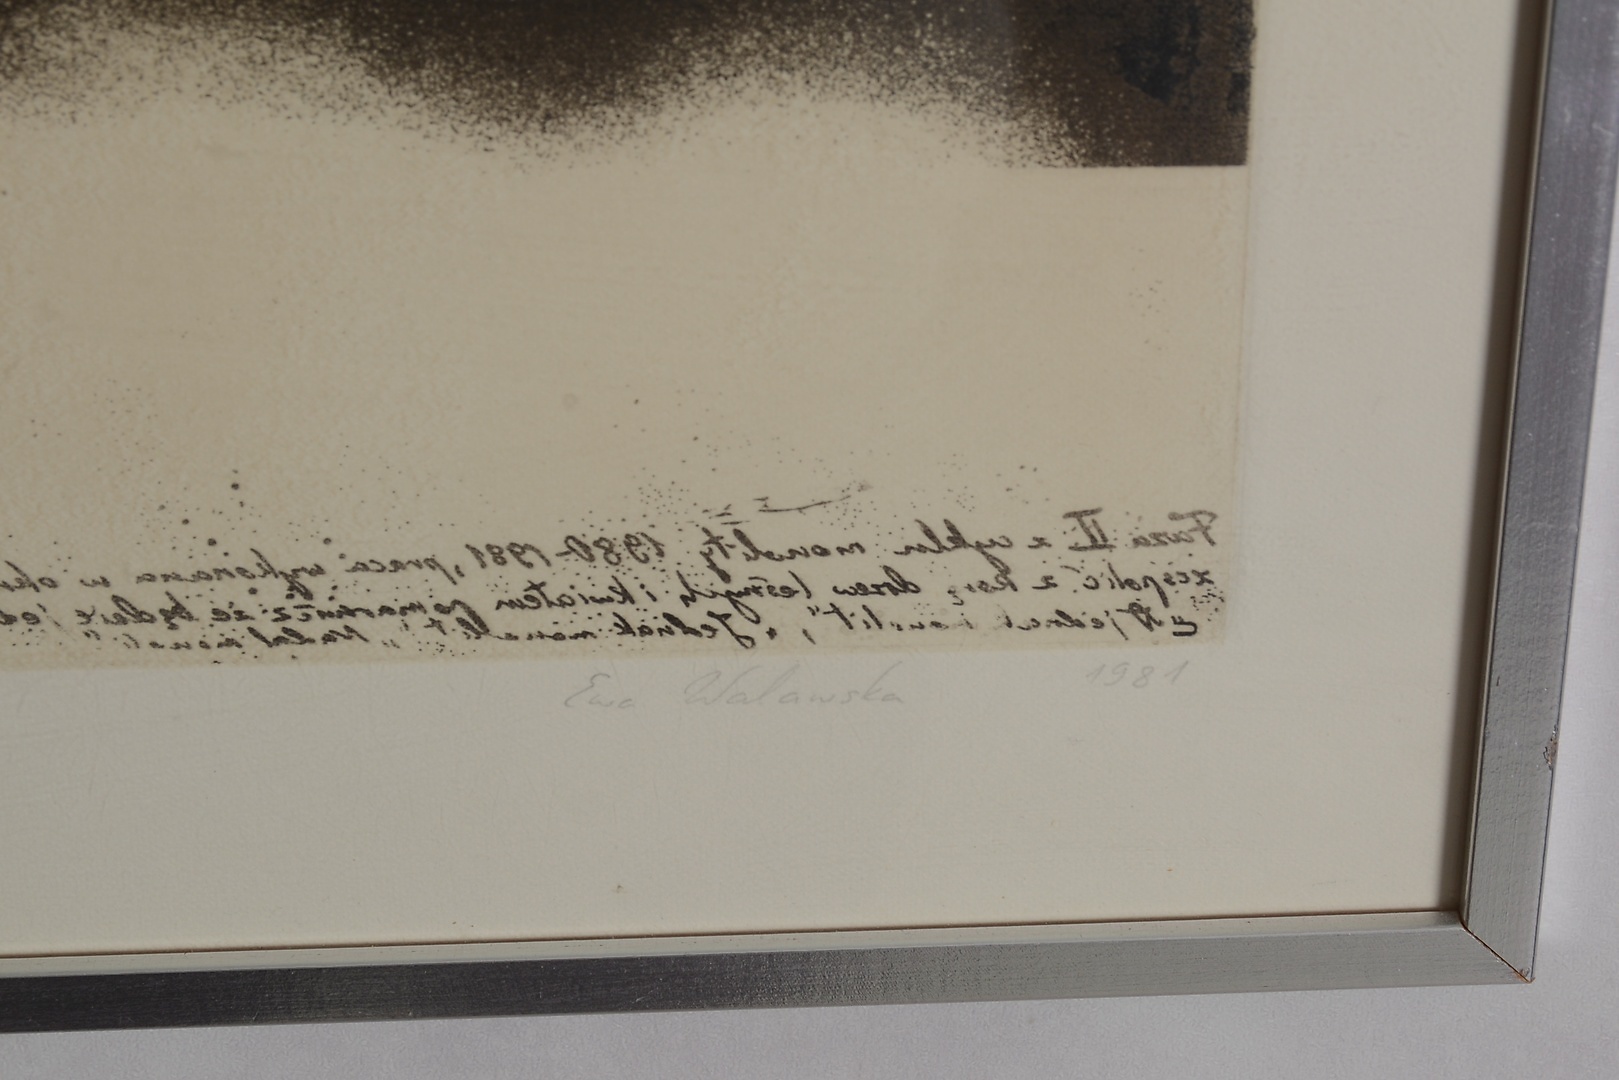 Faza II z cyklu monolity 1980-1981, praca wykonana w
zespolić z korą drzew leśnych i kwiatem pomarańcz że będzie
jednak monolit", „Jednak monolit", „nadal
Ewa Walawska 1981